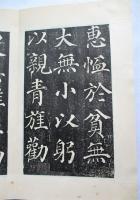 惠恤於貧無
大無小以躬
以親青旌勸